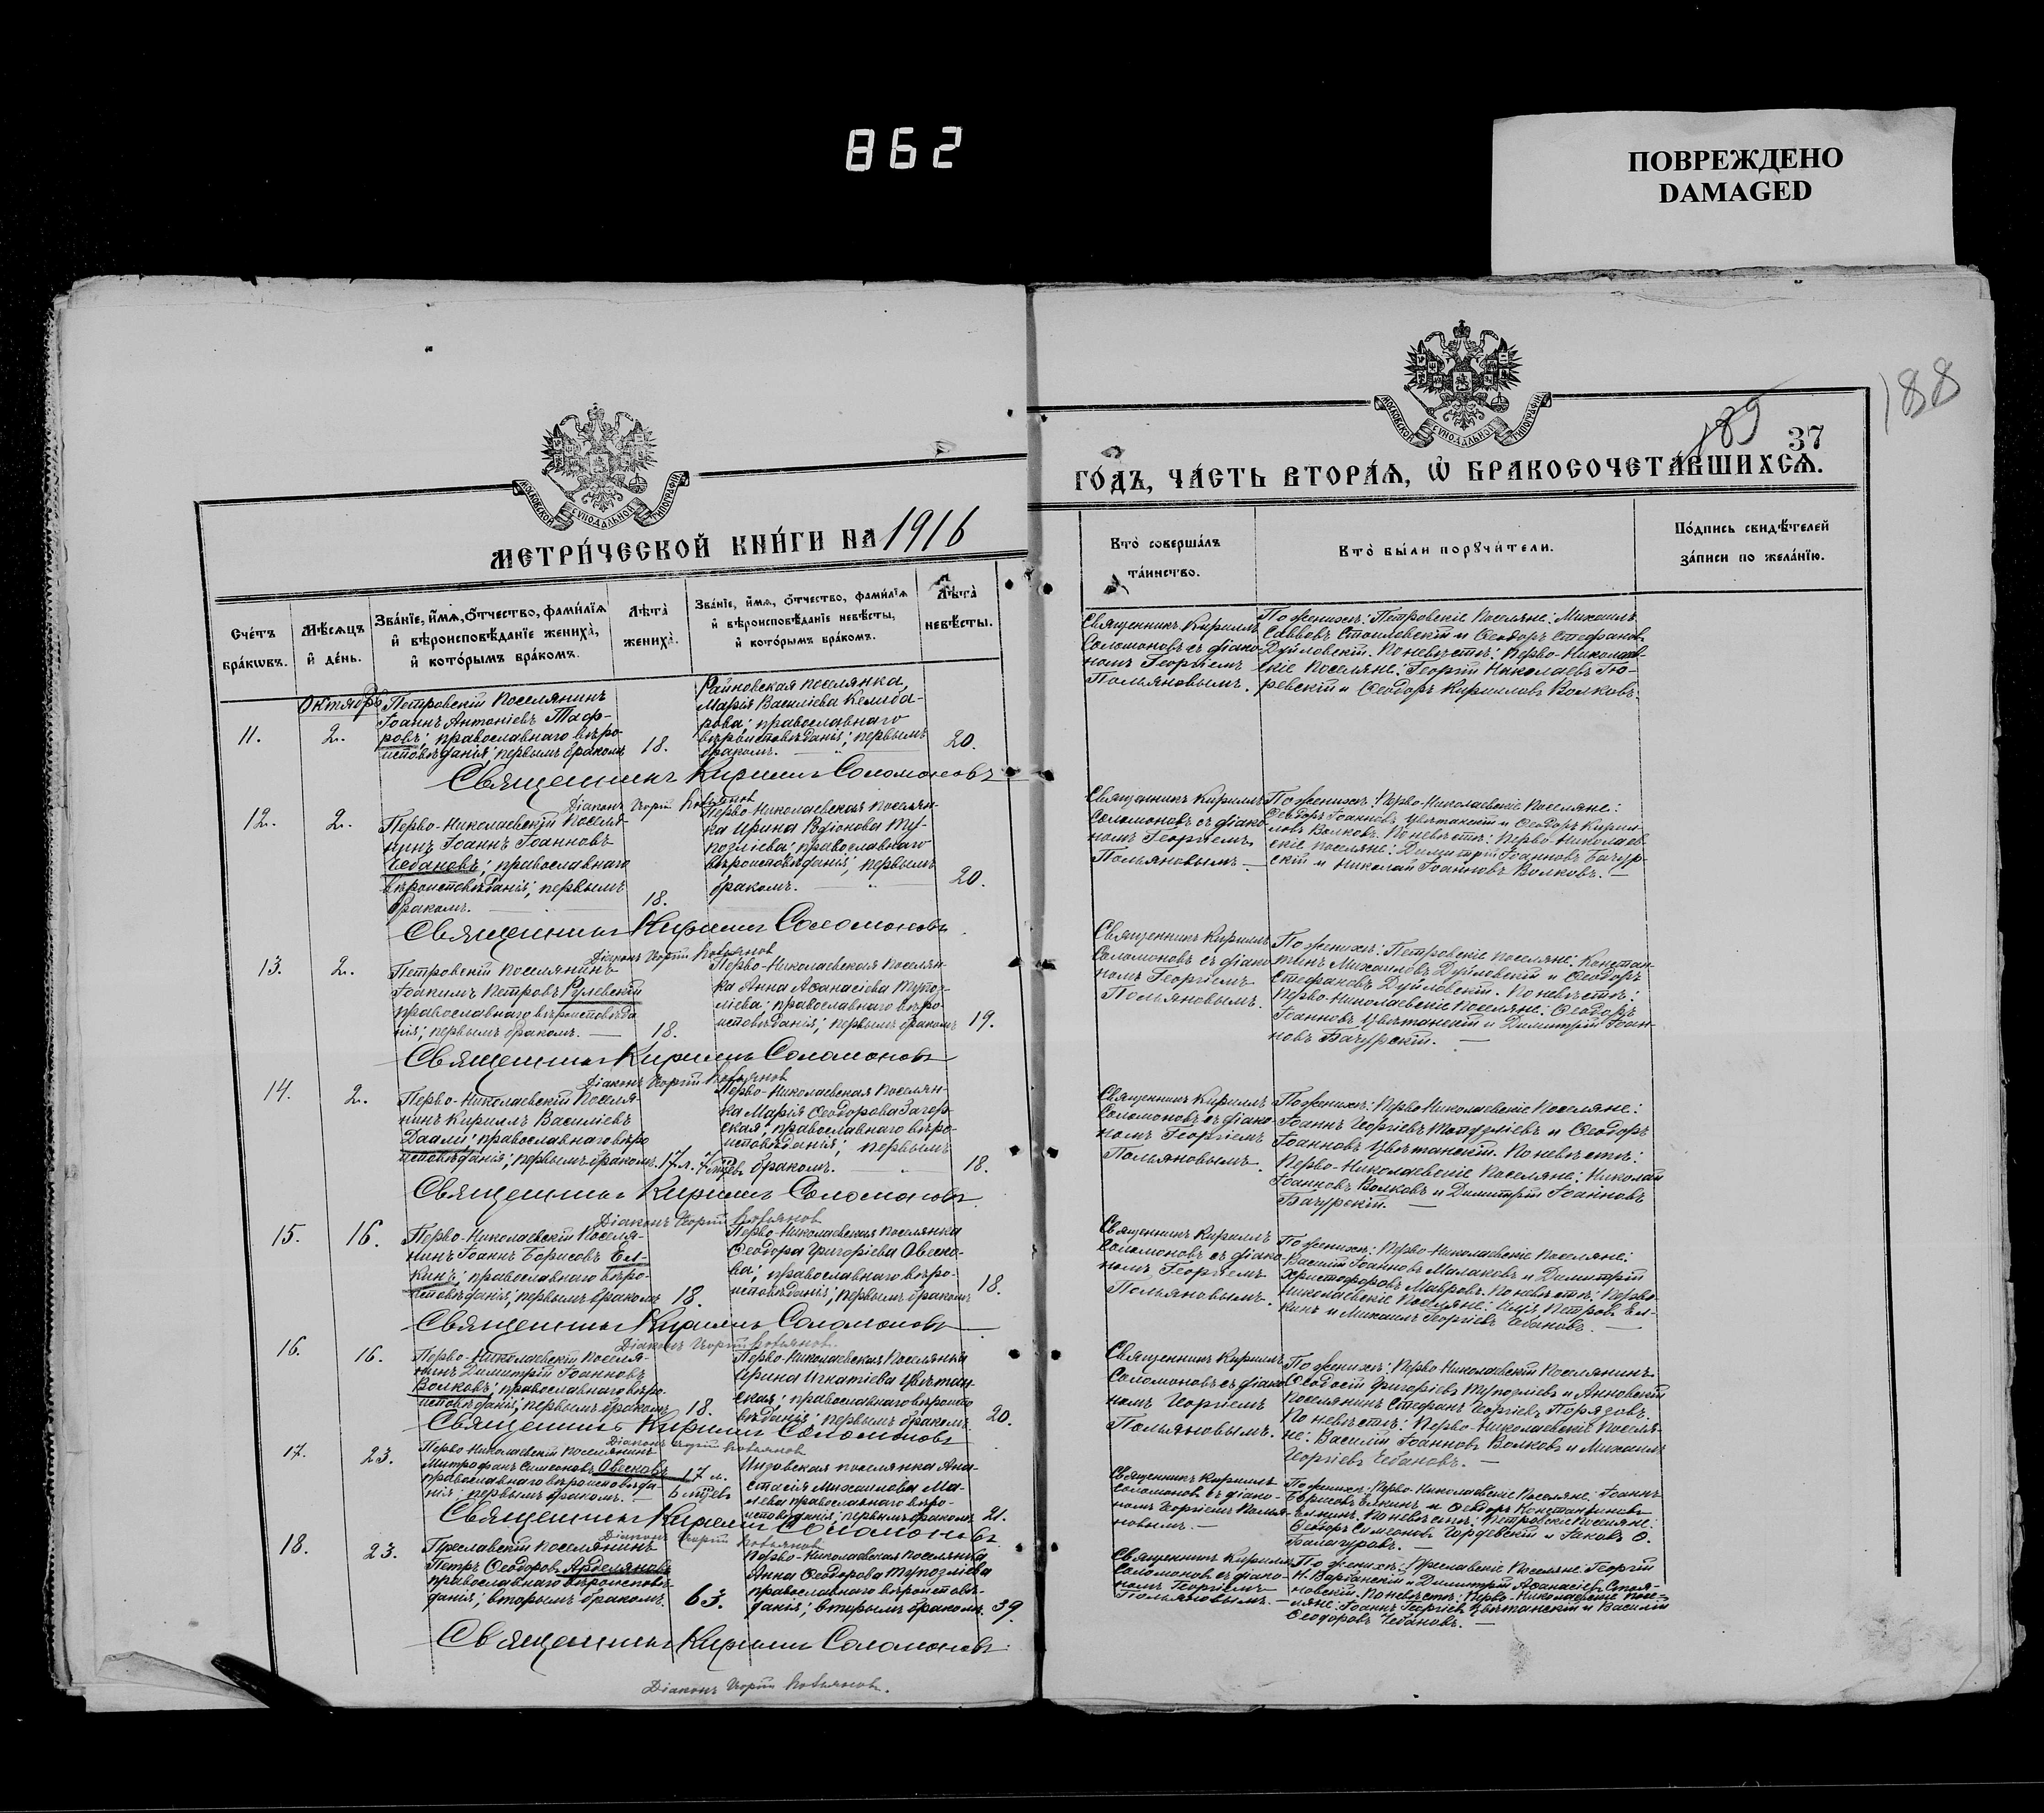 862
ПОВРЕЖДЕНО
DAMAGED
188
189
37
МОСКОВСКОЙ СѴНОДАЛЬНОЙ ТИПОГРАФІИ
МОСКОВСКОЙ СѴНОДАЛЬНОЙ ТИПОГРАФІИ
МЕТРИ́ЧЕСКОЙ КНИ́ГИ НА 1916
ГО́ДЪ, ЧА́СТЬ ВТОРА́Ѧ, Ѽ БРАКОСОЧЕТА́ВШИХСѦ.
Сче́тъ
бра́кѡвъ.
Мѣ́сѧцъ
и҆ де́нь.
Зва́нїе, и҆́мѧ, ѻ҆́тчество, фами́лїѧ
и҆ вѣроисповѣ́данїе жениха̀,
и҆ кото́рымъ бра́комъ.
Лѣ́та̀
жениха̀.
Зва́нїе, и҆́мѧ, ѻ҆́тчество, фами́лїѧ
и҆ вѣроисповѣ́данїе невѣ́сты,
и҆ кото́рымъ бра́комъ.
Лѣ́та̀
невѣ́сты.
Кто̀ соверша́лъ
та́инство.
Кто̀ бы́ли порꙋчи́тели.
По́дпись свидѣ́телей
за́писи по жела́нїю.
Октябрь
11.
2.
Петровскій поселянинъ
Іоаннъ Антоніевъ Таф-
ровъ; православнаго вѣро-
исповѣданія; первымъ бракомъ
18.
Райновская поселянка,
Марія Василіева Келиба-
рова; православнаго
вѣроисповѣданія; первымъ
бракомъ.
20.
Священникъ Кириллъ
Соломоновъ съ діако-
номъ Георгіемъ
Польяновымъ.
По женихѣ: Петровскіе поселяне: Михаилъ
Савовъ Стоиловскій и Ѳеодоръ Стефановъ
Дуйловскій. По невѣстѣ: Перво-Николаев-
скіе поселяне: Георгій Николаевъ Гю-
ревскій и Ѳеодоръ Кирилловъ Волковъ.
Священникъ Кириллъ Соломоновъ
Діаконъ Георгій Польяновъ
12.
2.
Перво-Николаевскій поселя-
нинъ Іоаннъ Іоанновъ
Чебановъ; православнаго
вѣроисповѣданія; первымъ
бракомъ.
18.
Перво-Николаевская поселян-
ка Ирина Родіонова Туп-
озліева; православнаго
вѣроисповѣданія; первымъ
бракомъ.
20.
Священникъ Кириллъ
Соломоновъ съ діако-
номъ Георгіемъ
Польяновымъ.
По женихѣ: Перво-Николаевскіе поселяне:
Ѳеодоръ Іоанновъ Цвѣтанскій и Ѳеодоръ Кирил-
ловъ Волковъ. По невѣстѣ: Перво-Николаев-
скіе поселяне: Димитрій Іоанновъ Бачур-
скій и Николай Іоанновъ Волковъ.
Священникъ Кириллъ Соломоновъ
Діаконъ Георгій Польяновъ
13.
2.
Петровскій поселянинъ
Іоакимъ Петровъ Рулевскій
православнаго вѣроисповѣда-
нія; первымъ бракомъ.
18.
Перво-Николаевская поселян-
ка Анна Аѳанасіева Тупоз-
ліева; православнаго вѣро-
исповѣданія; первымъ бракомъ
19.
Священникъ Кириллъ
Соломоновъ съ діако-
номъ Георгіемъ
Польяновымъ.
По женихѣ: Петровскіе поселяне: Констан-
тинъ Михаиловъ Дуйловскій и Ѳеодоръ
Стефановъ Дуйловскій. По невѣстѣ:
Перво-Николаевскіе поселяне: Ѳеодоръ
Іоанновъ Цвѣтанскій и Димитрій Іоан-
новъ Бачурскій.
Священникъ Кириллъ Соломоновъ
Діаконъ Георгій Польяновъ
14.
2.
Перво-Николаевскій поселя-
нинъ Кириллъ Василіевъ
Даали; православнаго вѣро-
исповѣданія; первымъ бракомъ.
17 л. 7 мцевъ
Перво-Николаевская поселян-
ка Марія Ѳеодорова Загор-
ская; православнаго вѣро-
исповѣданія; первымъ
бракомъ.
18.
Священникъ Кириллъ
Соломоновъ съ діако-
номъ Георгіемъ
Польяновымъ.
По женихѣ: Перво-Николаевскіе поселяне:
Іоаннъ Георгіевъ и Ѳеодоръ
Іоанновъ Цвѣтанскій. По невѣстѣ:
Перво-Николаевскіе поселяне: Николай
Іоанновъ Волковъ и Димитрій Іоанновъ
Бачурскій.
Священникъ Кириллъ Соломоновъ
Діаконъ Георгій Польяновъ
15.
16.
Перво-Николаевскій поселя-
нинъ Іоаннъ Борисовъ Ел-
кинъ; православнаго вѣро-
исповѣданія; первымъ бракомъ
18.
Перво-Николаевская поселянка
Ѳеодора Григоріева Овеско-
ва; православнаго вѣро-
исповѣданія; первымъ бракомъ
18.
Священникъ Кириллъ
Соломоновъ съ діако-
номъ Георгіемъ
Польяновымъ.
По женихѣ: Перво-Николаевскіе поселяне:
Василій Іоанновъ Малаковъ и Димитрій
Христофоровъ Мавровъ. По невѣстѣ: Перво-
Николаевскіе поселяне: Петровъ Ел-
кинъ и Михаилъ Георгіевъ Чебановъ.
Священникъ Кириллъ Соломоновъ
Діаконъ Георгій Польяновъ
16.
16.
Перво-Николаевскій поселя-
нинъ Димитрій Іоанновъ
Волковъ; православнаго вѣро-
исповѣданія; первымъ бракомъ
18.
Перво-Николаевская поселянка
Ирина Игнатіева Цвѣтан-
ская; православнаго вѣроиспо-
вѣданія; первымъ бракомъ.
20.
Священникъ Кириллъ
Соломоновъ съ діако-
номъ Георгіемъ
Польяновымъ.
По женихѣ: Перво-Николаевскій поселянинъ
Ѳеодосій Григоріевъ Тупозліевъ и Анновскій
поселянинъ Стефанъ Георгіевъ Порязовъ.
По невѣстѣ: Перво-Николаевскіе поселя-
не: Василій Іоанновъ Волковъ и Михаилъ
Георгіевъ Чебановъ.
Священникъ Кириллъ Соломоновъ
Діаконъ Георгій Польяновъ
17.
23.
Перво-Николаевскій поселянинъ
Митрофанъ Симеоновъ Овесковъ
православнаго вѣроисповѣда-
нія; первымъ бракомъ.
17 л.
6 мцевъ
Инзовская поселянка Ана-
стасія Михаилова Ма-
лева православнаго вѣро-
исповѣданія; первымъ бракомъ.
21.
Священникъ Кириллъ
Соломоновъ съ діако-
номъ Георгіемъ Полья-
новымъ.
По женихѣ: Перво-Николаевскіе поселяне: Іоаннъ
Борисовъ Елкинъ и Ѳеодоръ Константиновъ
Елкинъ. По невѣстѣ: Петровскіе поселяне:
Ѳеодоръ Симеоновъ Чордевскій и Іаковъ Ѳ.
Балауровъ.
Священникъ Кириллъ Соломоновъ
Діаконъ Георгій Польяновъ
18.
23.
Преславскій поселянинъ
Петръ Ѳеодоровъ Арделяновъ
православнаго вѣроисповѣ-
данія; вторымъ бракомъ.
63.
Перво-Николаевская поселянка
Анна Ѳеодорова Тупозліева
православнаго вѣроисповѣ-
данія; вторымъ бракомъ.
39.
Священникъ Кириллъ
Соломоновъ съ діако-
номъ Георгіемъ
Польяновымъ.
По женихѣ: Преславскіе поселяне: Георгій
Н. Варбанскій и Димитрій Аѳанасіевъ Стоя-
новскій. По невѣстѣ: Перво-Николаевскіе посе-
ляне: Іоаннъ Георгіевъ Цвѣтанскій и Василій
Ѳеодоровъ Чебановъ.
Священникъ Кириллъ Соломоновъ
Діаконъ Георгій Польяновъ.